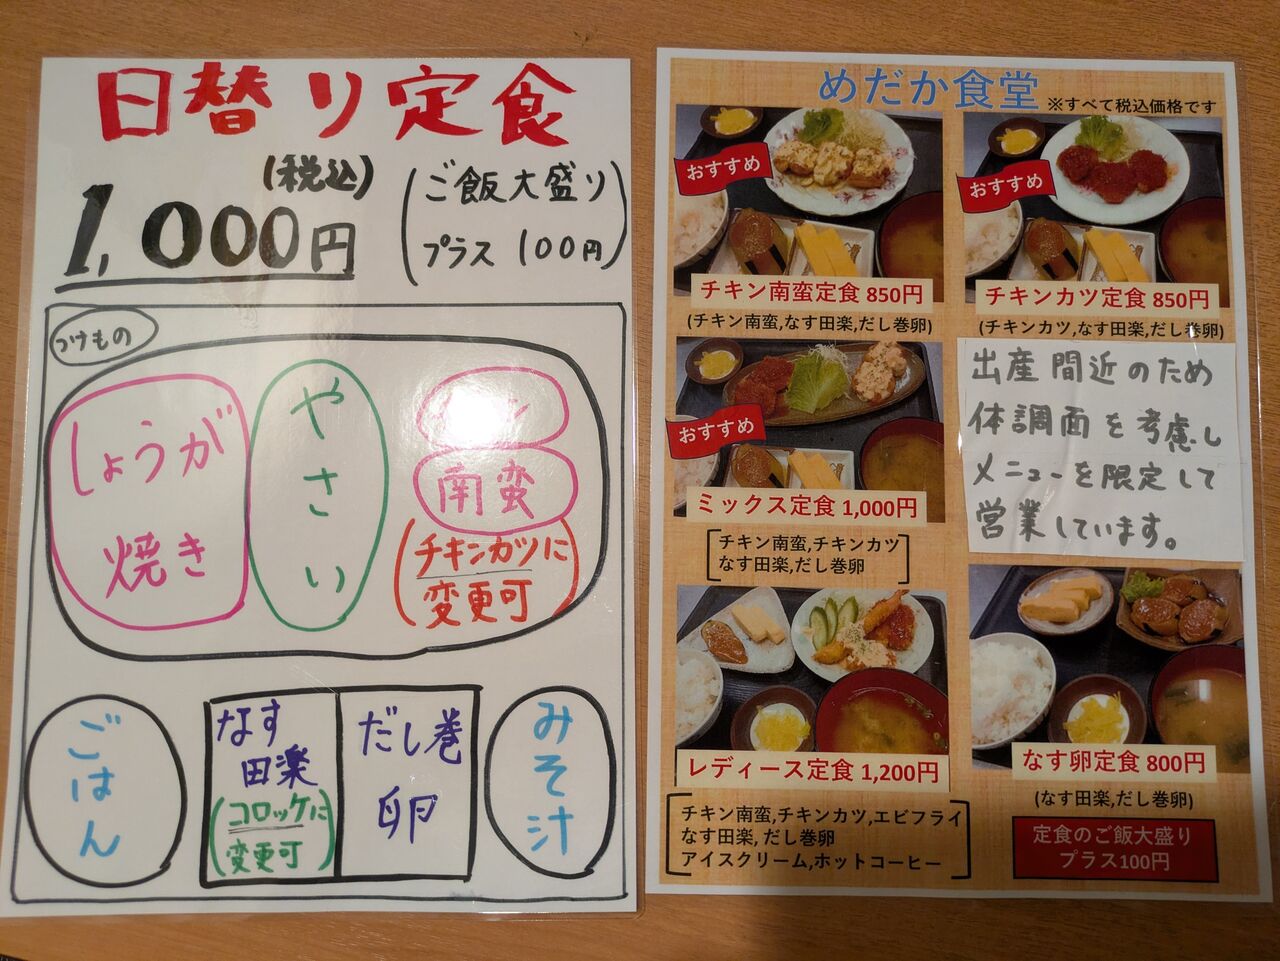 日替り定食
(税込)
1,000円
(ご飯大盛り
プラス 100円)
つけもの
しょうが
焼き
やさい
南蛮
(チキンカツに
変更可)
ごはん
なす
田楽
(コロッケに
変更可)
だし巻
卵
みそ汁
めだか食堂
※すべて税込価格です
おすすめ
チキン南蛮定食 850円
(チキン南蛮,なす田楽,だし巻卵)
おすすめ
チキンカツ定食 850円
(チキンカツ,なす田楽,だし巻卵)
おすすめ
ミックス定食 1,000円
[チキン南蛮,チキンカツ
なす田楽,だし巻卵]
出産間近のため
体調面を考慮し
メニューを限定して
営業しています。
レディース定食 1,200円
[チキン南蛮,チキンカツ,エビフライ
なす田楽, だし巻卵
アイスクリーム,ホットコーヒー]
なす卵定食 800円
(なす田楽,だし巻卵)
定食のご飯大盛り
プラス100円